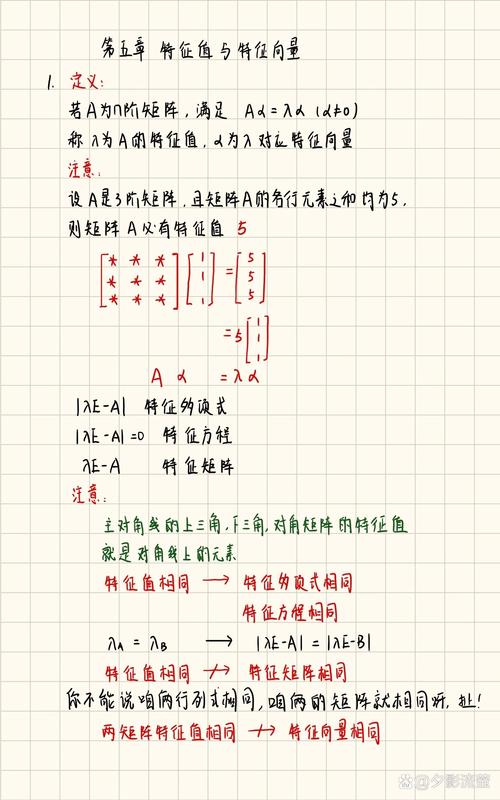 第五章 特征值与特征向量
1. 定义:
若A为n阶矩阵,满足 Aα=λα (α≠0)
称λ为A的特征值,α为λ对应特征向量
注意:
设A是3阶矩阵,且矩阵A的各行元素之和均为5,
则矩阵A必有特征值 5
[* * *] [1] = [5]
[* * *] [1] [5]
[* * *] [1] [5]
=5 [1]
[1]
[1]
A α =λα
|λE-A| 特征多项式
|λE-A|=0 特征方程
λE-A 特征矩阵
注意:
主对角线的上三角,下三角,对角矩阵的特征值
就是对角线上的元素
特征值相同 → 特征多项式相同
特征方程相同
λA = λB → |λE-A| = |λE-B|
特征值相同 ↛ 特征矩阵相同
你不能说咱俩行列式相同,咱俩的矩阵就相同呀,扯!
两矩阵特征值相同 ↛ 特征向量相同
@夕影流萤